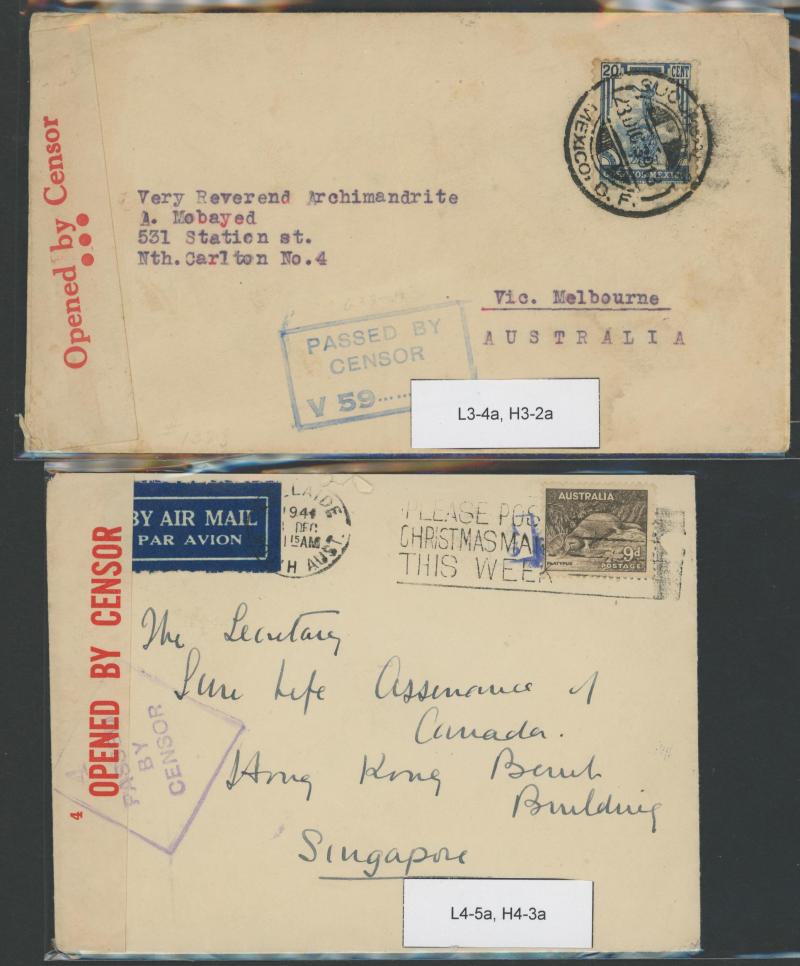 Opened by Censor
20 CENT
MEXICO, D. F.
Very Reverend Archimandrite
A. Mobayed
531 Station st.
Nth.Carlton No.4
Vic. Melbourne
AUSTRALIA
PASSED BY
CENSOR
V 59
L3-4a, H3-2a
OPENED BY CENSOR
4
BY AIR MAIL
PAR AVION
LAIDE
194
DEC
15AM
H AUST.
PLEASE POS
CHRISTMAS MA
THIS WEEK
AUSTRALIA
9d
PLATYPUS
POSTAGE
PASS
BY
CENSOR
The Secretary
Sun Life Assurance of
Canada.
Hong Kong Bank
Building
Singapore
L4-5a, H4-3a